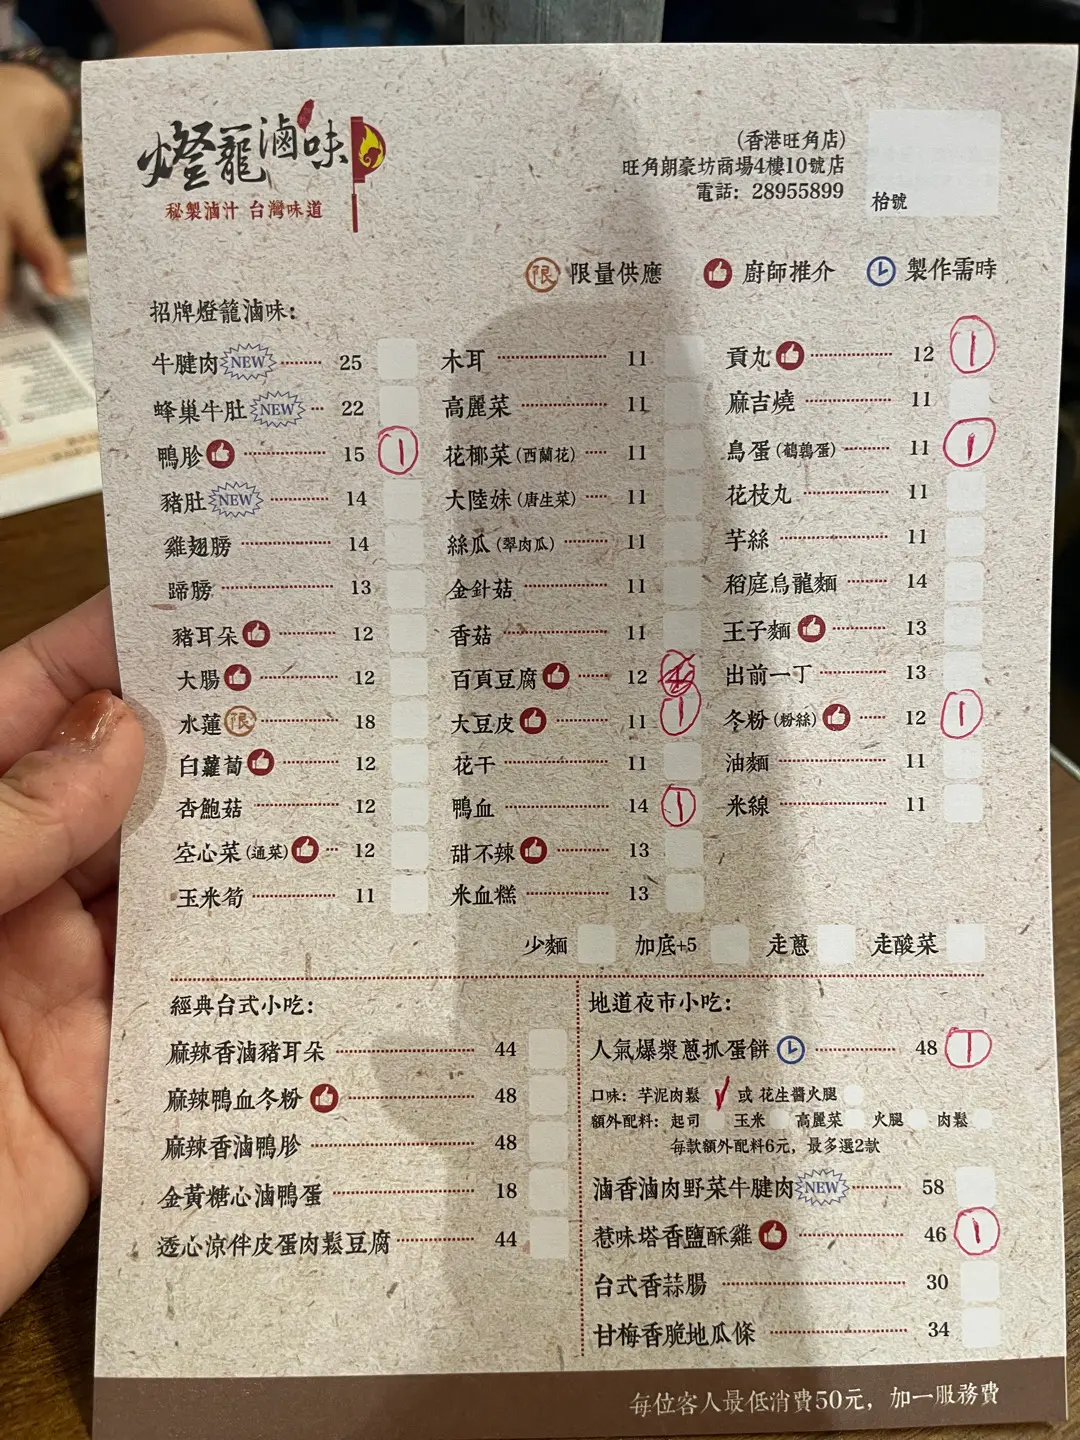 燈籠滷味
秘製滷汁 台灣味道
(香港旺角店)
旺角朗豪坊商場4樓10號店
電話: 28955899
枱號
限 限量供應 廚師推介 製作需時
招牌燈籠滷味:
牛腱肉 NEW 25
蜂巢牛肚 NEW 22
鴨胗 15 1
豬肚 NEW 14
雞翅膀 14
蹄膀 13
豬耳朵 12
大腸 12
水蓮 限 18
白蘿蔔 12
杏鮑菇 12
空心菜 (通菜) 12
玉米筍 11
木耳 11
高麗菜 11
花椰菜 (西蘭花) 11
大陸妹 (唐生菜) 11
絲瓜 (翠肉瓜) 11
金針菇 11
香菇 11
百頁豆腐 12
大豆皮 11 1
花干 11
鴨血 14 1
甜不辣 13
米血糕 13
貢丸 12 1
麻吉燒 11
鳥蛋 (鵪鶉蛋) 11 1
花枝丸 11
芋絲 11
稻庭烏龍麵 14
王子麵 13
出前一丁 13
冬粉 (粉絲) 12 1
油麵 11
米線 11
少麵 加底+5 走蔥 走酸菜
經典台式小吃:
麻辣香滷豬耳朵 44
麻辣鴨血冬粉 48
麻辣香滷鴨胗 48
金黃糖心滷鴨蛋 18
透心涼伴皮蛋肉鬆豆腐 44
地道夜市小吃:
人氣爆漿蔥抓蛋餅 48 1
口味: 芋泥肉鬆 ✓ 或 花生醬火腿
額外配料: 起司 玉米 高麗菜 火腿 肉鬆
每款額外配料6元, 最多選2款
滷香滷肉野菜牛腱肉 NEW 58
惹味塔香鹽酥雞 46 1
台式香蒜腸 30
甘梅香脆地瓜條 34
每位客人最低消費50元, 加一服務費